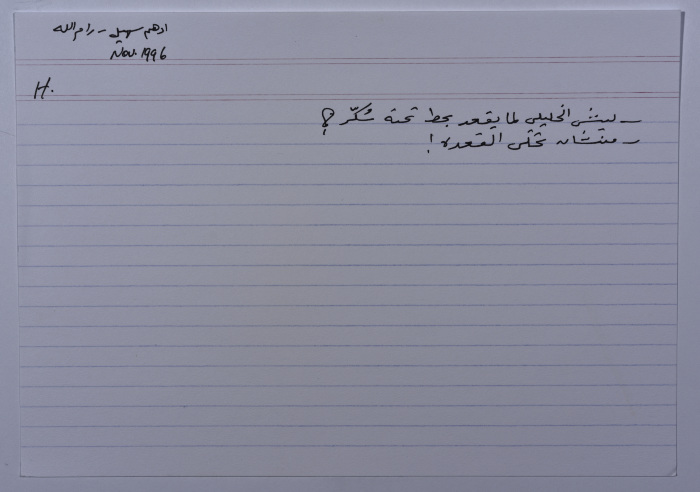 ادهم سهيل - رام الله
Nov. 1996
H.
- ليش الخليلي لما يقعد بحط تحته سُكّر ؟!
- منشان تحلى القعده !